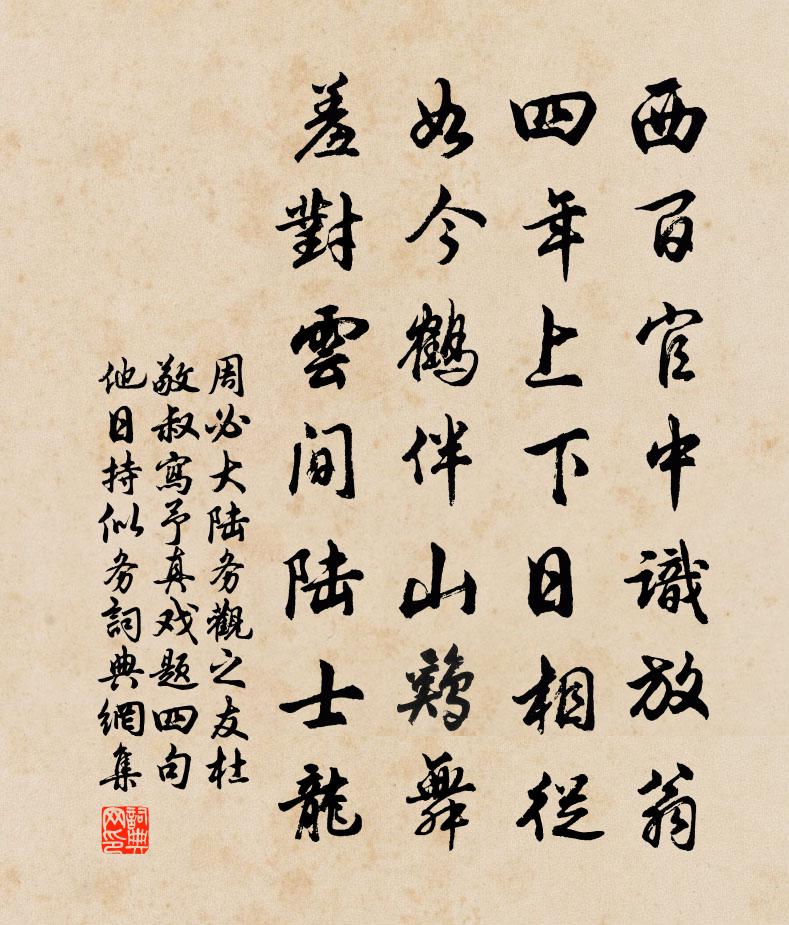 西百官中識放翁
四年上下日相從
如今鶴伴山鷄舞
羞對雲間陸士龍
周必大陆务觀之友杜
敬叔寫予真戏题四句
他日持似务詞典網集
詞典网印